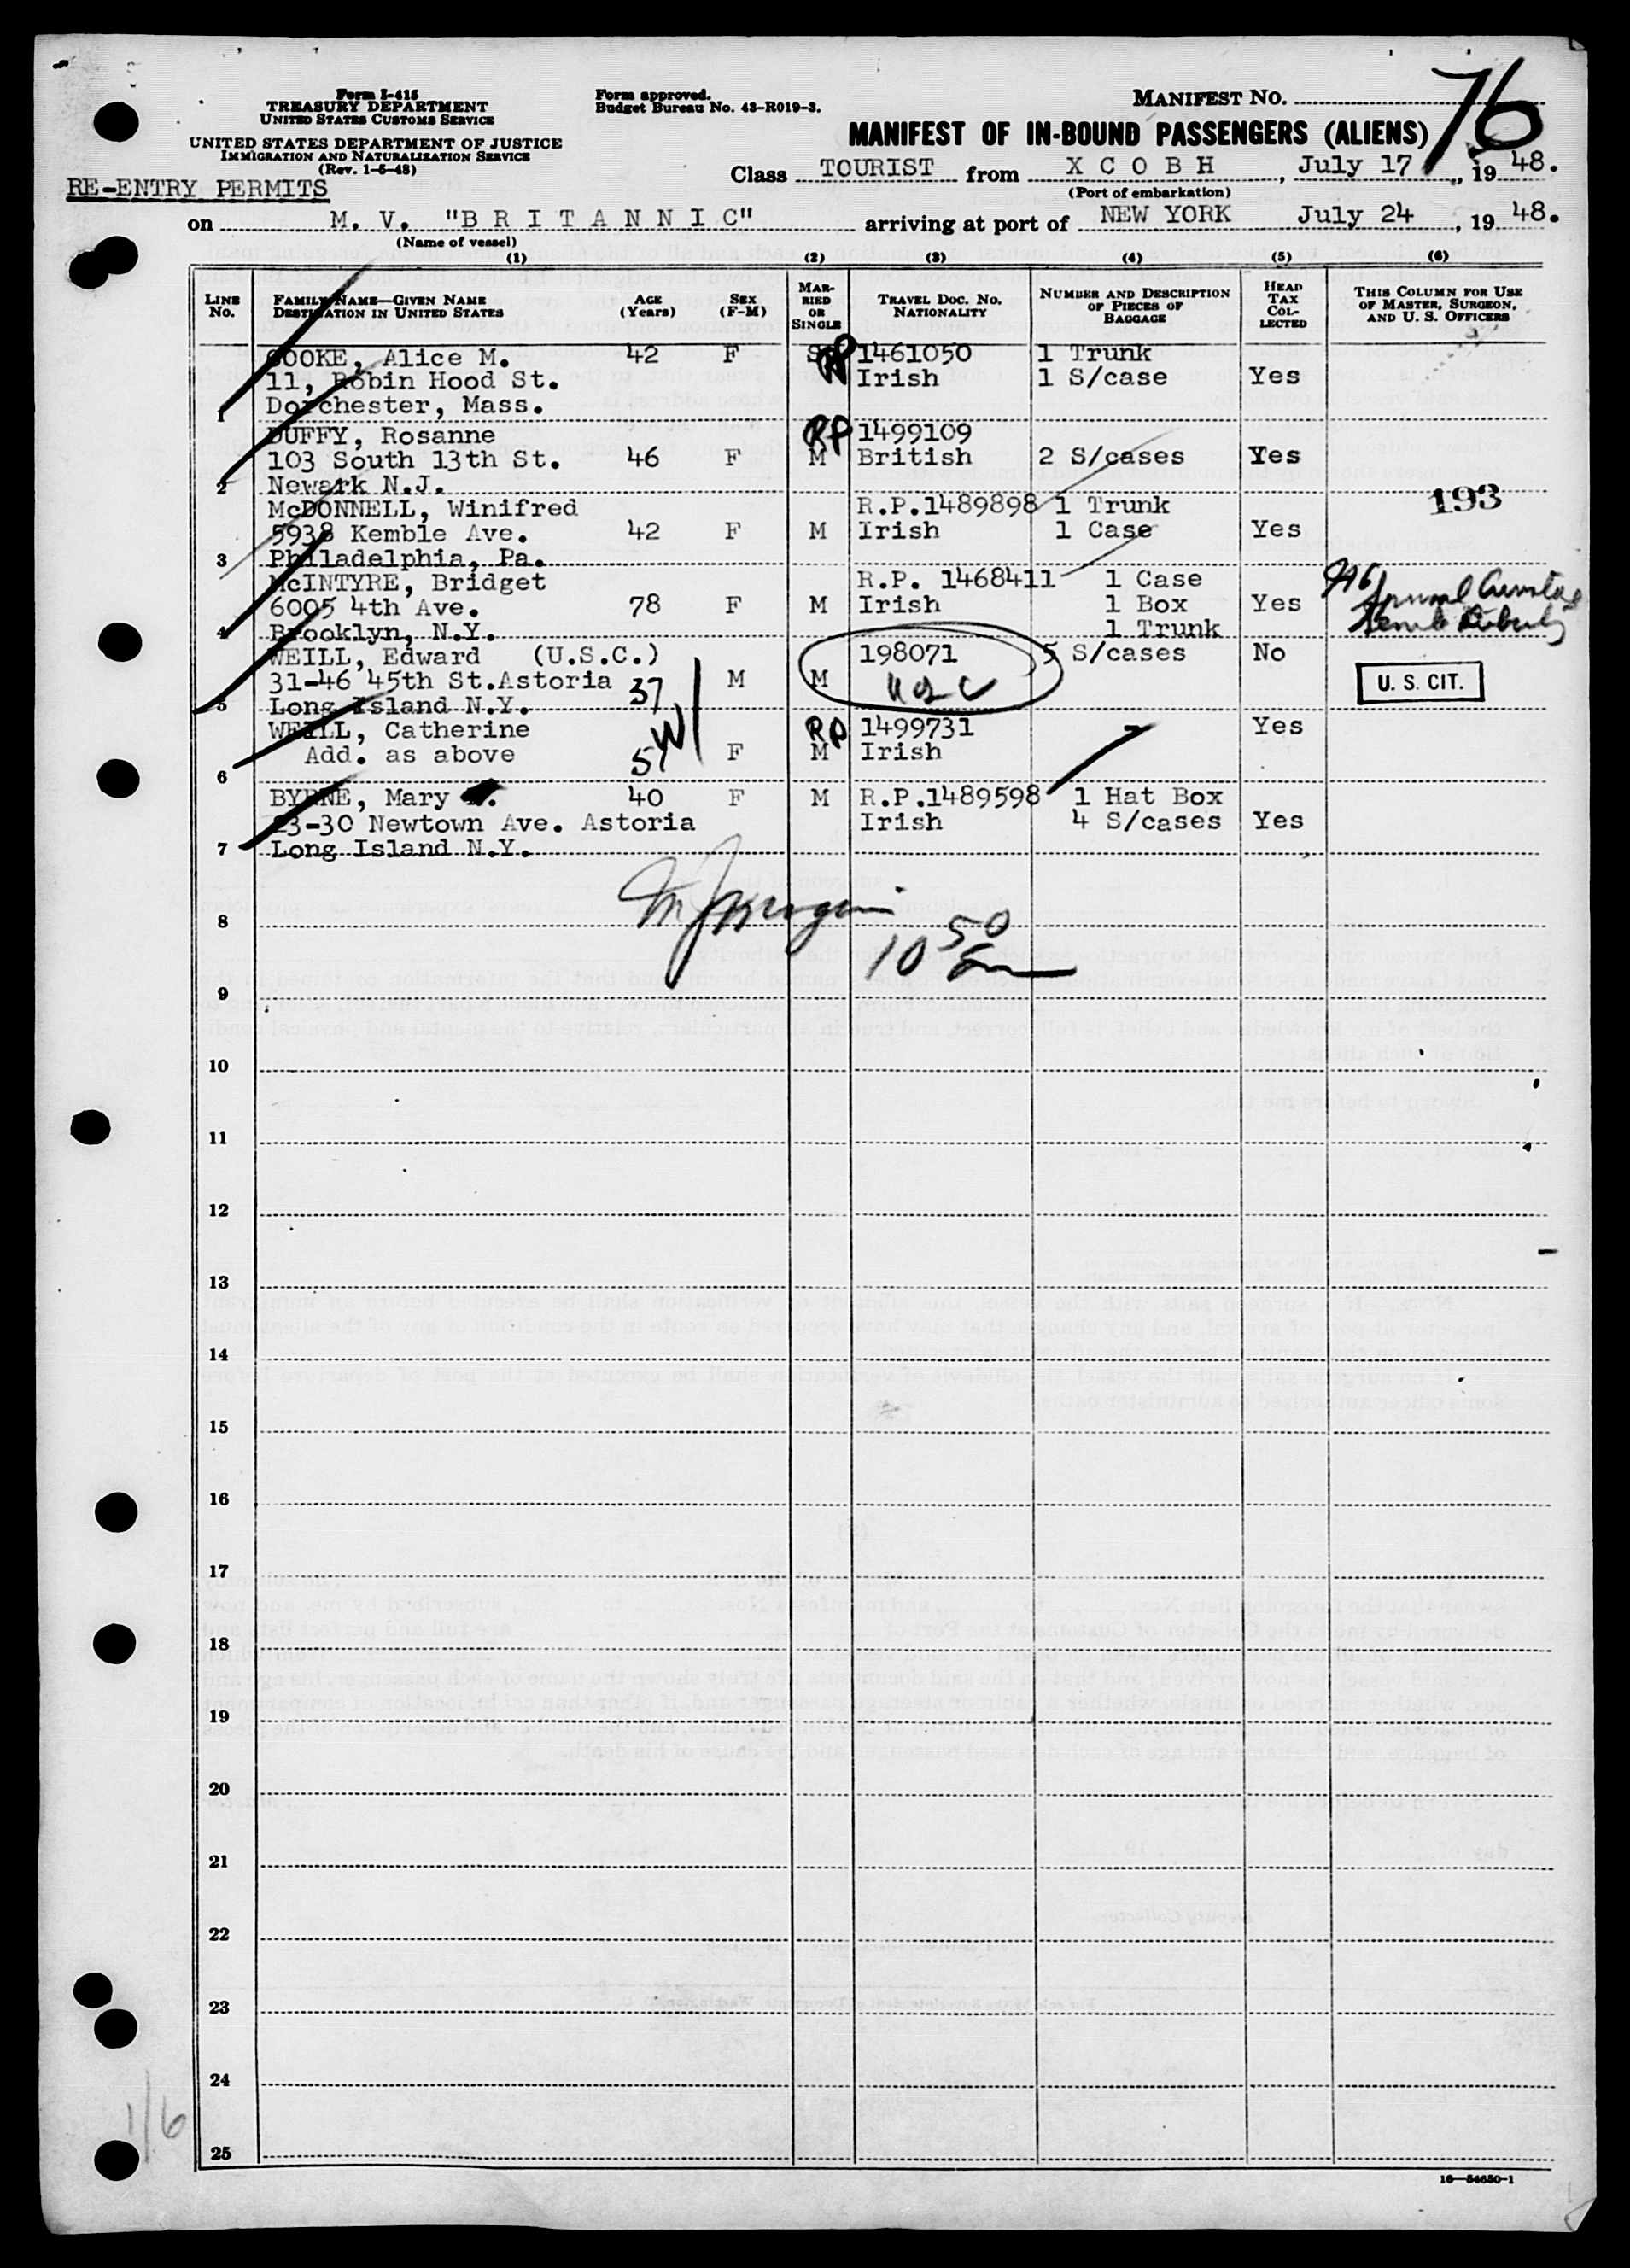 Form I-415
TREASURY DEPARTMENT
UNITED STATES CUSTOMS SERVICE
UNITED STATES DEPARTMENT OF JUSTICE
IMMIGRATION AND NATURALIZATION SERVICE
(Rev. 1-5-48)
RE-ENTRY PERMITS
Form approved.
Budget Bureau No. 43-R019-3.
MANIFEST NO. 76
MANIFEST OF IN-BOUND PASSENGERS (ALIENS)
Class TOURIST from X C O B H, July 17, 1948.
(Port of embarkation)
on M. V. "B R I T A N N I C" arriving at port of NEW YORK July 24, 1948.
(Name of vessel)
(1) (2) (3) (4) (5) (6)
LINE No. FAMILY NAME—GIVEN NAME DESTINATION IN UNITED STATES AGE (Years) SEX (F-M) MARRIED OR SINGLE TRAVEL DOC. NO. NATIONALITY NUMBER AND DESCRIPTION OF PIECES OF BAGGAGE HEAD TAX COLLECTED THIS COLUMN FOR USE OF MASTER, SURGEON, AND U. S. OFFICERS
COOKE, Alice M. 42 F S RP 1461050 1 Trunk
11, Robin Hood St. Irish 1 S/case Yes
1 Dorchester, Mass.
DUFFY, Rosanne RP 1499109
103 South 13th St. 46 F M British 2 S/cases Yes
2 Newark N.J.
McDONNELL, Winifred R.P.1489898 1 Trunk 193
5938 Kemble Ave. 42 F M Irish 1 Case Yes
3 Philadelphia, Pa.
McINTYRE, Bridget R.P. 1468411 1 Case
6005 4th Ave. 78 F M Irish 1 Box Yes
4 Brooklyn, N.Y. 1 Trunk
WEILL, Edward (U.S.C.) 198071 5 S/cases No
31-46 45th St.Astoria 37 M M USC U. S. CIT.
5 Long Island N.Y.
WEILL, Catherine RP 1499731 Yes
Add. as above F M Irish
6
BYRNE, Mary 40 F M R.P.1489598 1 Hat Box
23-30 Newtown Ave. Astoria Irish 4 S/cases Yes
7 Long Island N.Y.
8
10 50
9
10
11
12
13
14
15
16
17
18
19
20
21
22
23
24
25
1/6
16—54650-1